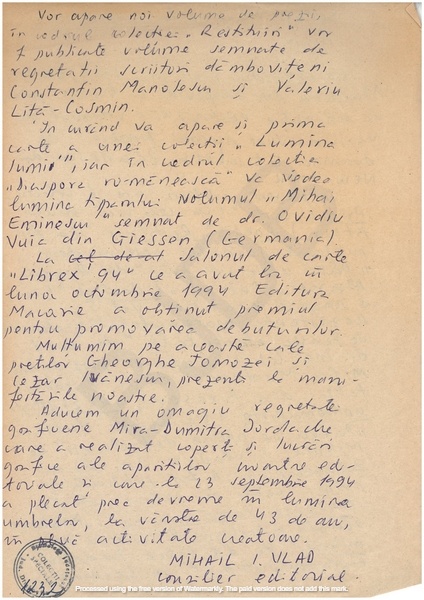 Vor apare noi volume de poezii,
în cadrul colecției „Restituiri" vor
f publicate volume semnate de
regretații scriitori dâmbovițeni
Constantin Manolescu și Valeriu
Liță-Cosmin.
În curând va apare și prima
carte a unei colecții „Lumina
lumii", iar în cadrul colecția
„Diaspora românească" va vedea
lumina tiparului volumul „Mihai
Eminescu" semnat de dr. Ovidiu
Vuia din Giessen (Germania).
La Salonul de carte
„Librex 94" ce a avut loc în
luna octombrie 1994 Editura
Macarie a obținut premiul
pentru promovarea debuturilor.
Mulțumim pe această cale
poeților Gheorghe Tomozei și
Cezar Ivănescu, prezenți la mani-
festările noastre.
Aducem un omagiu regretatei
graficiene Mira-Dumitra Iordache
care a realizat coperți și lucrări
grafice ale aparițiilor noastre edi-
toriale și care la 23 septembrie 1994
a plecat prea devreme în lumina
umbrelor, la vârsta de 43 de ani,
în activitate creatoare.
MIHAIL I. VLAD
consilier editorial.
COLECȚII
SPECIALE
Processed using the free version of Watermarkly. The paid version does not add this mark.